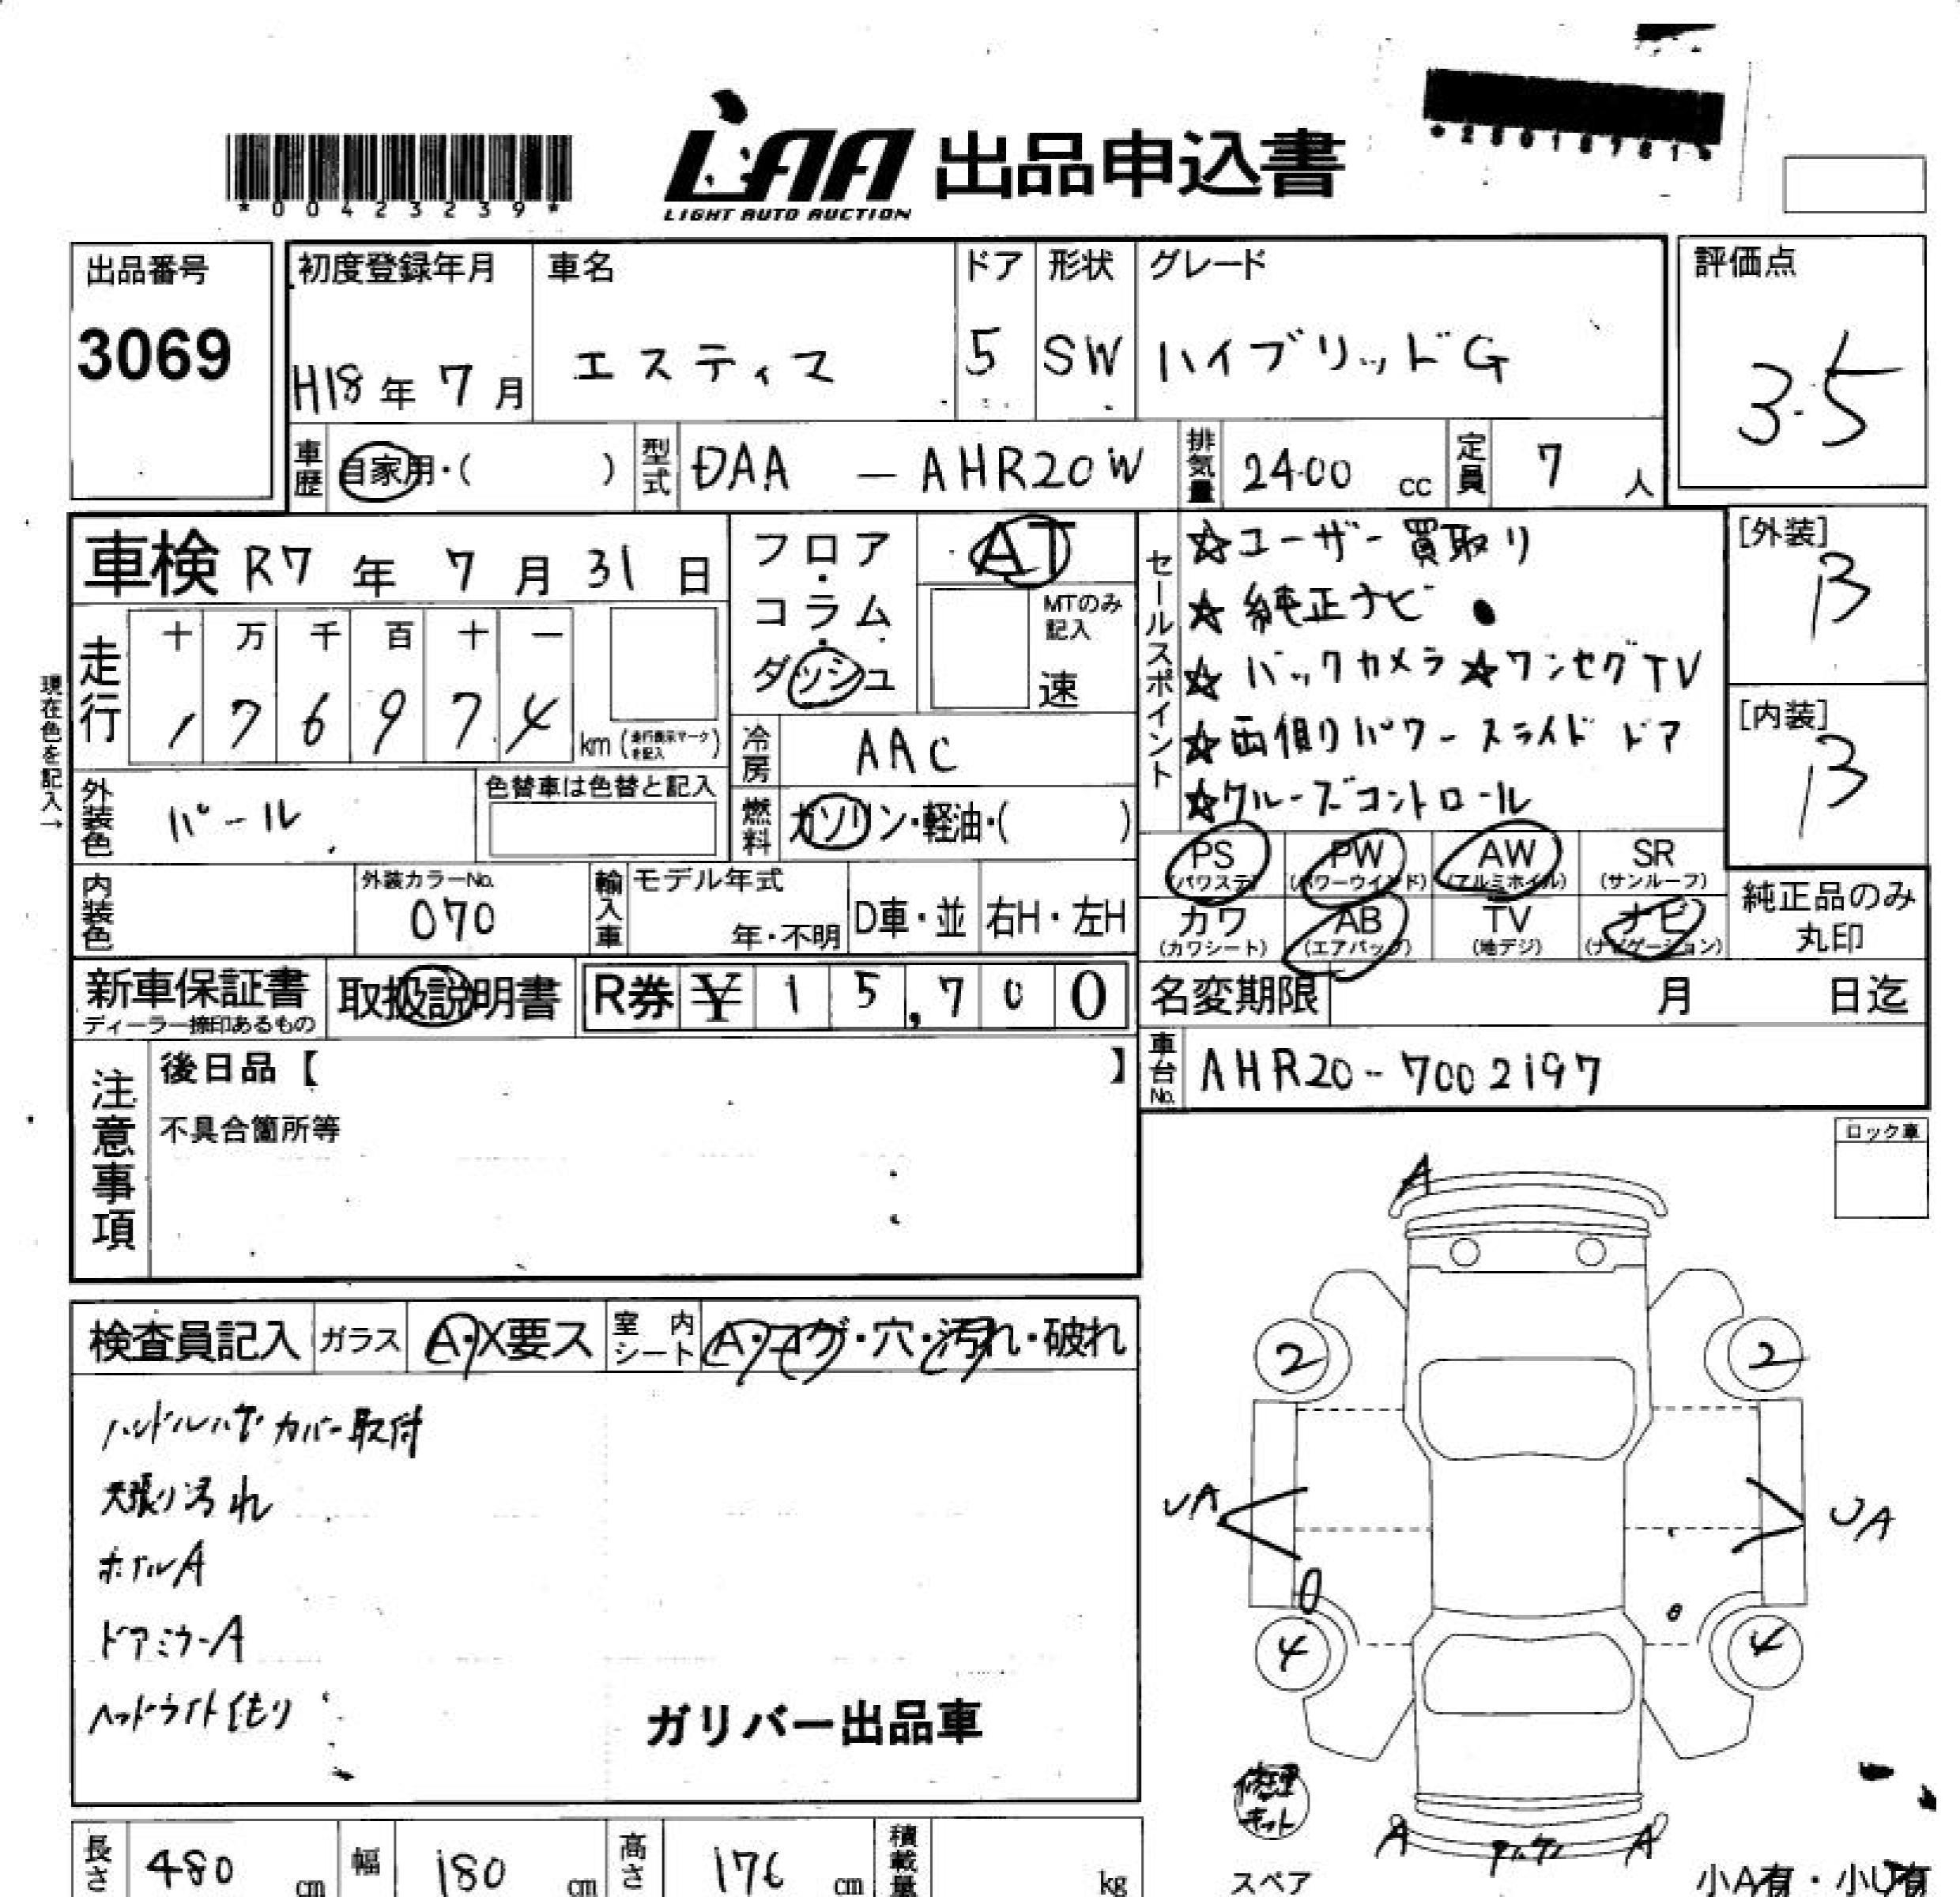 *00423239*
LAA 出品申込書
LIGHT AUTO AUCTION
出品番号
3069
初度登録年月
H18年 7月
車名
エスティマ
ドア
5
形状
SW
グレード
ハイブリッドG
評価点
3.5
車歴
自家用・( )
型式
DAA - AHR20W
排気量
2400 cc
定員
7 人
車検 R7年 7月 31日
フロア・コラム・ダッシュ
AT
MTのみ記入
速
セールスポイント
☆ユーザー買取り
☆純正ナビ
☆バックカメラ☆ワンセグTV
☆両側パワースライドドア
☆クルーズコントロール
[外装]
B
[内装]
B
現在色を記入→
走行
十 万 千 百 十 一
1 7 6 9 7 4
km (走行表示マークを記入)
冷房
AAC
外装色
パール
色替車は色替と記入
燃料
ガソリン・軽油・( )
PS (パワステ)
PW (パワーウインド)
AW (アルミホイル)
SR (サンルーフ)
カワ (カワシート)
AB (エアバッグ)
TV (地デジ)
ナビ (ナビゲーション)
純正品のみ丸印
内装色
外装カラーNo.
070
輸入車
モデル年式
年・不明
D車・並
右H・左H
新車保証書
ディーラー捺印あるもの
取扱説明書
R券 ¥ 15,700
名変期限 月 日迄
車台No.
AHR20-7002197
注意事項
後日品【 】
不具合箇所等
ロック車
検査員記入
ガラス
A・X要ス
室内シート
A・コゲ・穴・汚れ・破れ
カバー取付
天張り汚れ
ホイルA
ドアミラーA
ヘッドライトくもり
ガリバー出品車
A
2
2
UA
UA
4
4
修理キット
A
A
スペア
小A有・小U有
長さ
480 cm
幅
180 cm
高さ
176 cm
積載量
kg